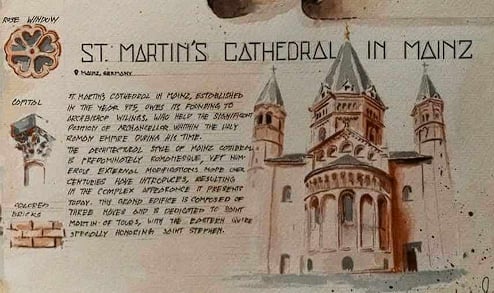 ROSE WINDOW
ST. MARTIN'S CATHEDRAL IN MAINZ
MAINZ, GERMANY
ST MARTIN'S CATHEDRAL IN MAINZ, ESTABLISHED
IN THE YEAR 975, OWES ITS FOUNDING TO
ARCHBISHOP WILINGS, WHO HELD THE SIGNIFICANT
POSITION OF ARCHANCELLOR WITHIN THE HOLY
ROMAN EMPIRE DURING HIS TIME.
THE ARCHITECTURAL STYLE OF MAINZ CATHEDRAL
IS PREDOMINATELY ROMANESQUE, YET NUM
EROUS EXTERNAL MODIFICATIONS MADE OVER
CENTURIES HAVE INTRODUCED, RESULTING
IN THE COMPLEX APPEARANCE IT PRESENTS
TODAY. THIS GRAND EDIFICE IS COMPOSED OF
THREE NAVES AND IS DEDICATED TO SAINT
MARTIN OF TOURS, WITH THE EASTERN CHOIRE
SPECIALLY HONORING SAINT STEPHEN.
CAPITAL
COLORED
BRICKS